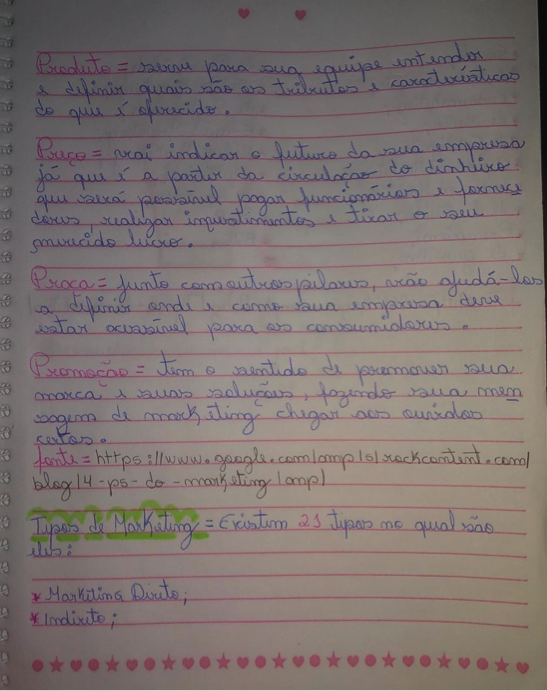 Produto = serve para sua equipe entender
e definir quais são os tributos e características
do que é oferecido.
Preço = vai indicar o futuro da sua empresa
já que é a partir da circulação do dinheiro
que será possível pagar funcionários e fornece
dores realizar investimentos e tirar o seu
merecido lucro.
Praça = junto com outros pilares, vão ajudá-los
a definir onde e como sua empresa deve
estar acessível para os consumidores.
Promoção = tem o sentido de promover sua
marca e suas soluções, fazendo sua men
sagem de marketing chegar aos ouvidos
certos.
fonte = https://www.google.com/amp/s/rockcontent.com/
blog/4-ps-do-marketing/amp/
Tipos de Marketing = Existem 23 tipos no qual são
eles:
* Marketing Direto;
* Indireto;